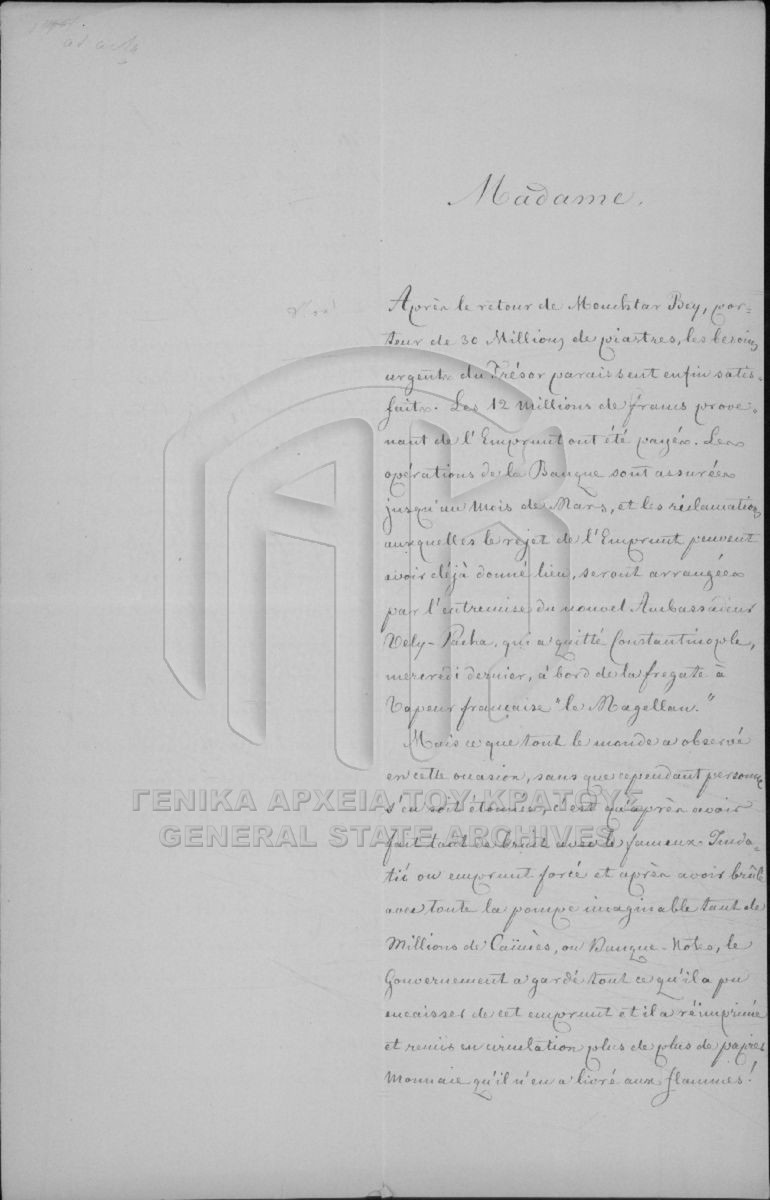 ad acta
Madame,
Après le retour de Mouchtar Bey, por=
teur de 30 Millions de piastres, les besoins
urgents du Trésor paraissent enfin satis=
faits. Les 12 Millions de francs prove=
nant de l'Emprunt ont été payés. Les
opérations de la Banque sont assurées
jusqu'au Mois de Mars, et les réclamations
auxquelles le rejet de l'Emprunt peuvent
avoir déjà donné lieu, seront arrangées
par l'entremise du nouvel Ambassadeur
Vely-Pacha, qui a quitté Constantinople,
mercredi dernier, à bord de la fregate à
Vapeur française "le Magellan."
Mais ce que tout le monde a observé
en cette occasion, sans que cependant personne
s'en soit étonné, c'est qu'après avoir
fait tant de bruit avec le fameux Imda=
tié ou emprunt forcé et après avoir brûlé
avec toute la pompe imaginable tant de
Millions de Caïmès, ou Banque-Notes, le
Gouvernement a gardé tout ce qu'il a pu
encaisser de cet emprunt et il a réimprimé
et remis en circulation plus de plus de papier
Monnaie qu'il n'en a livré aux flammes!
ΓΕΝΙΚΑ ΑΡΧΕΙΑ ΤΟΥ ΚΡΑΤΟΥΣ
GENERAL STATE ARCHIVES